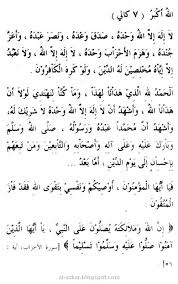 الله أكبر ( ٧ كالي )
لا إله إلا الله وحده ، صدق وعده ، ونصر عبده ، وأعز
جنده ، وهزم الأحزاب وحده ، لا إله إلا الله ولا نعبد
إلا إياه مخلصين له الدين ، ولو كره الكافرون .
الحمد لله الذي هدانا لهذا ، وما كنا لنهتدي لولا أن
هدانا الله ، وأشهد أن لا إله إلا الله وحده لا شريك له ،
وأشهد أن محمدا عبده ورسوله ، صلى الله وسلم
وبارك عليه وعلى آله وأصحابه والتابعين ومن تبعهم
بإحسان إلى يوم الدين ، أما بعد ...
فيا أيها المؤمنون ، أوصيكم ونفسي بتقوى الله فقد قال
الله ﴿ إن الله وملائكته يصلون على النبي ، يا أيها الذين
آمنوا صلوا عليه وسلموا تسليما ﴾ [ سورة الأحزاب ، آية :
٥٦ ]